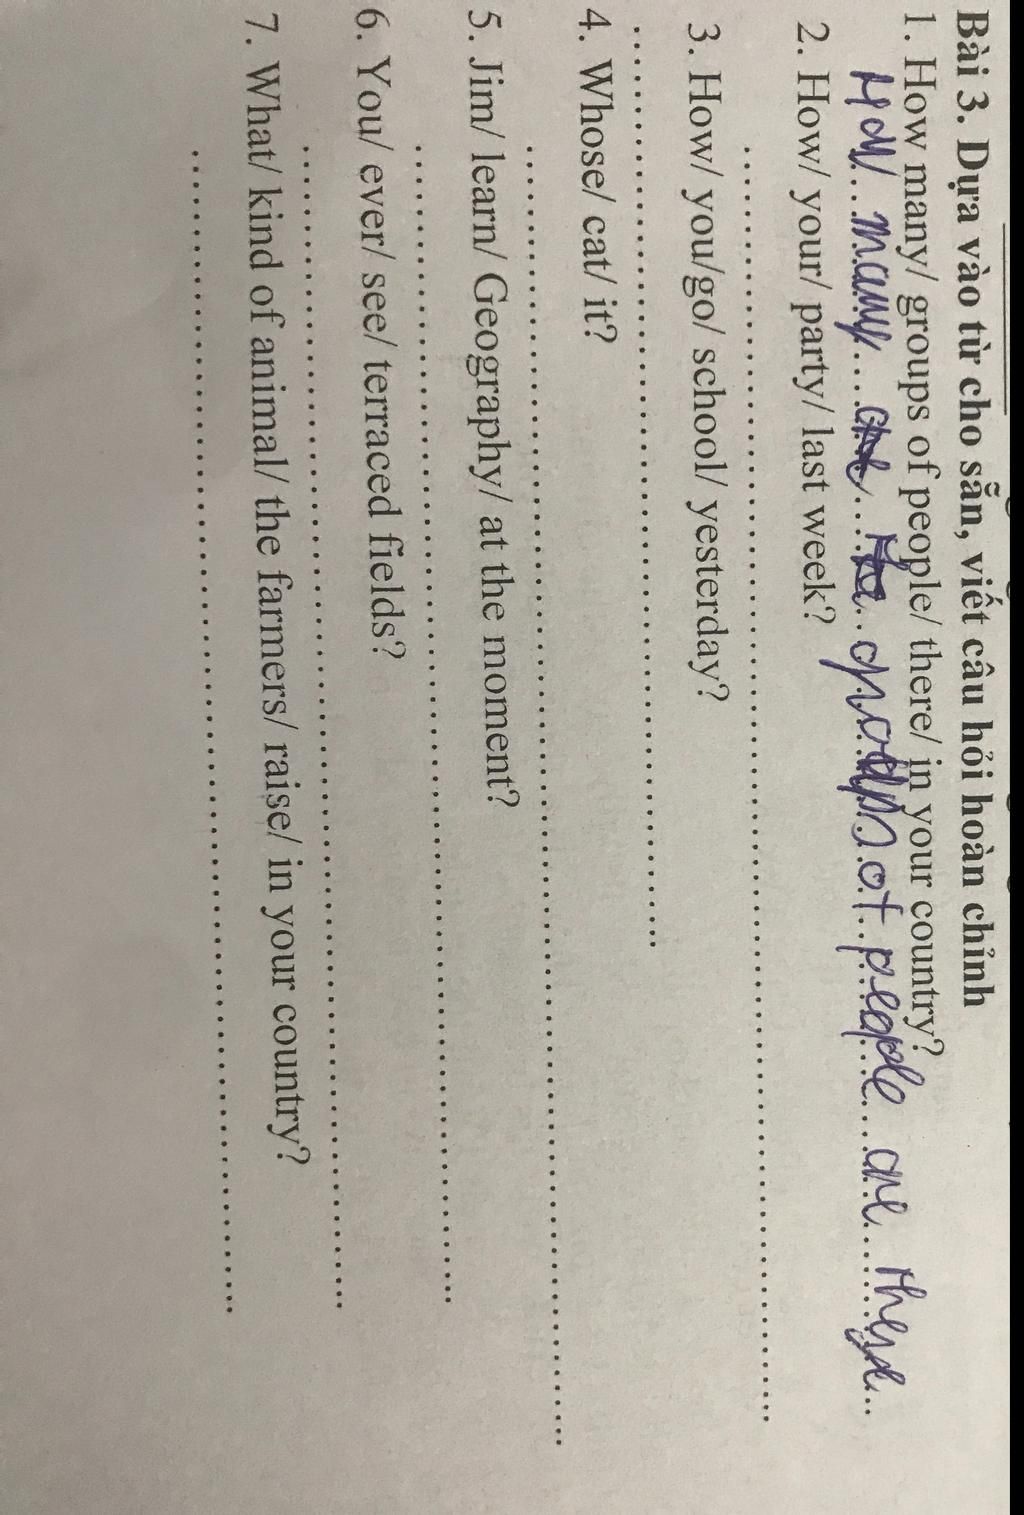 Bài 3. Dựa vào từ cho sẵn, viết câu hỏi hoàn chỉnh
1. How many/ groups of people/ there/ in your country?
many groups of people are there
2. How/ your/ party/ last week?
3. How/ you/go/ school/ yesterday?
4. Whose/ cat/ it?
5. Jim/ learn/ Geography/ at the moment?
6. You/ ever/ see/ terraced fields?
7. What/ kind of animal/ the farmers/ raise/ in your country?